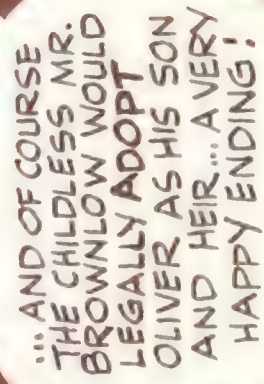 ... AND OF COURSE
THE CHILDLESS MR.
BROWNLOW WOULD
LEGALLY ADOPT
OLIVER AS HIS SON
AND HEIR... A VERY
HAPPY ENDING!